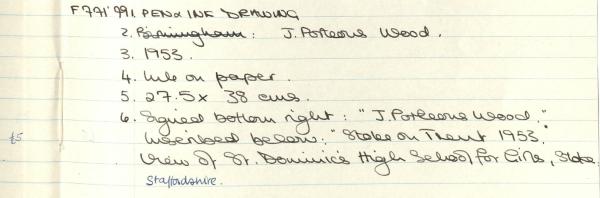 F771'991. PEN & INK DRAWING
2. Birmingham: J. Porteous Wood.
3. 1953.
4. Ink on paper.
5. 27.5 x 38 cms.
6. Signed bottom right: "J. Porteous Wood."
£5 Inscribed below: "Stoke on Trent 1953."
View of St. Dominic's High School for Girls, Stoke.
Staffordshire.